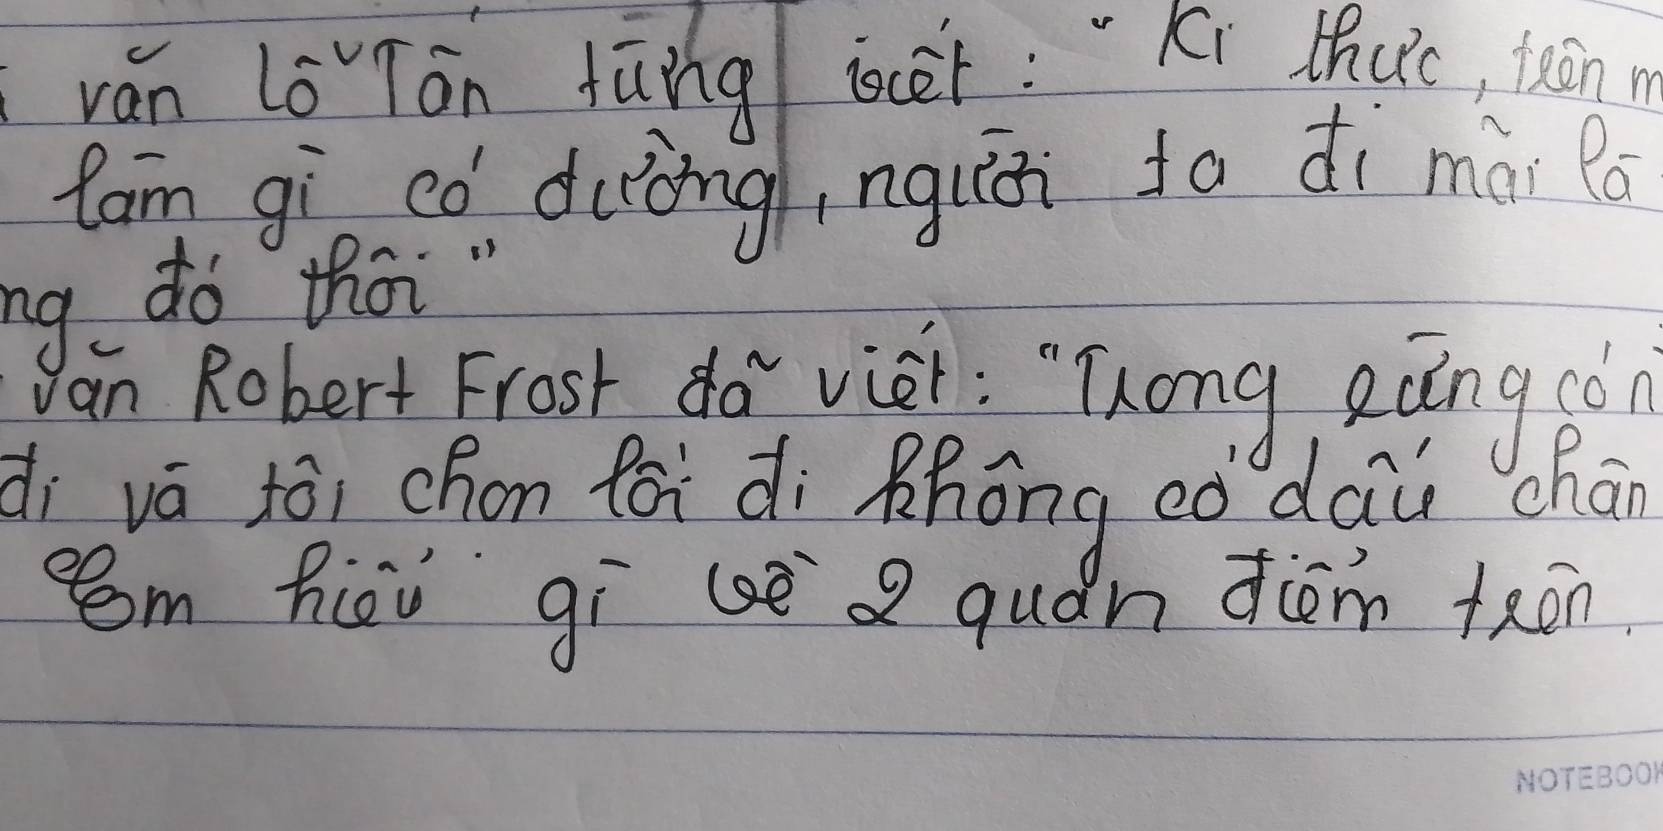 văn Lỗ Tấn từng viết: "Kì thực, trên m
làm gì có đường, người ta đi mãi là
ng đó thôi"
văn Robert Frost đã viết: "Trong rừng có n
đi và tôi chọn lối đi không có dấu chân
Em hiểu gì về 2 quan điểm trên.
NOTEBOOK